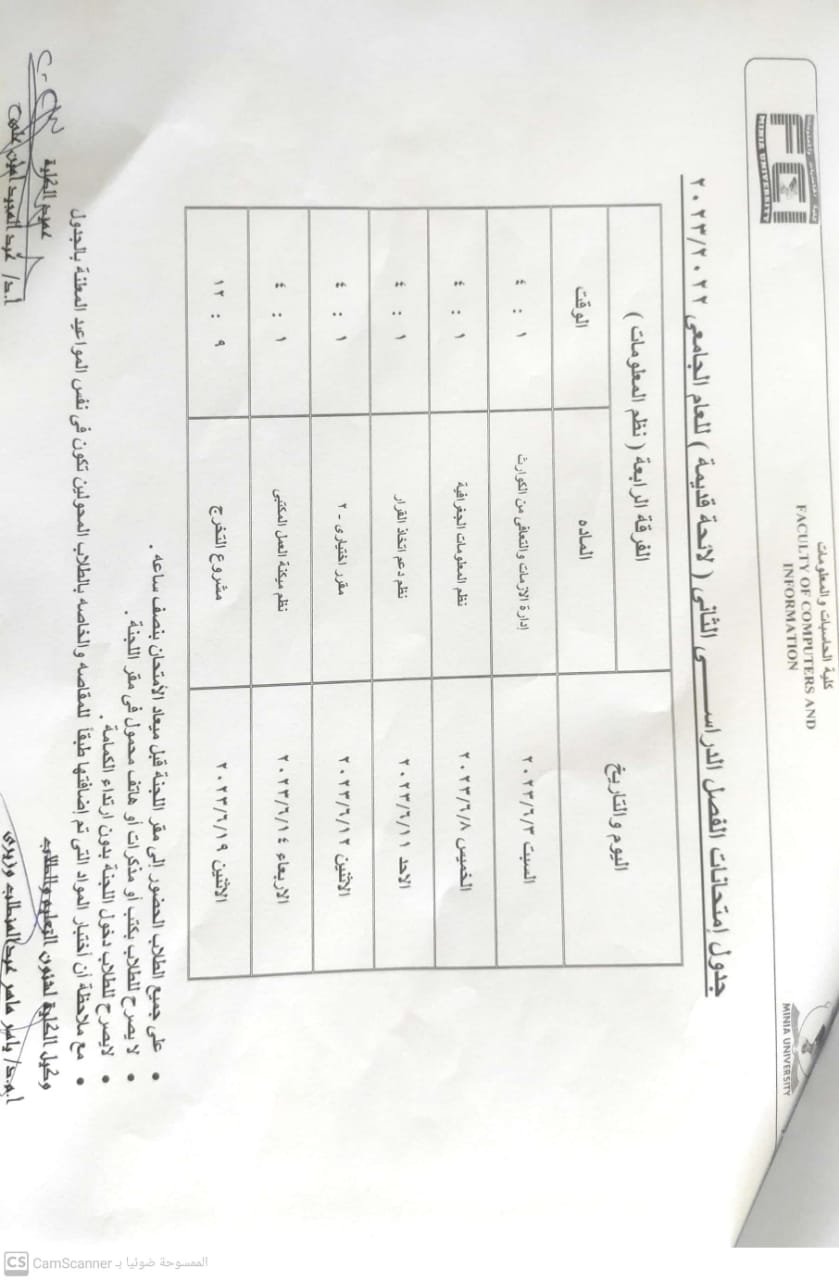 كلية الحاسبات والمعلومات
FACULTY OF COMPUTERS AND
INFORMATION
FCI
MINIA UNIVERSITY
MINIA UNIVERSITY
جدول إمتحانات الفصل الدراســـى الثانى ( لائحة قديمة ) للعام الجامعى ٢٠٢٣/٢٠٢٢
اليوم والتاريخ الفرقة الرابعة ( نظم المعلومات )
الماده الوقت
السبت ٢٠٢٣/٦/٣ إدارة الازمات والتعافى من الكوارث ١ : ٤
الخميس ٢٠٢٣/٦/٨ نظم المعلومات الجغرافية ١ : ٤
الاحد ٢٠٢٣/٦/١١ نظم دعم اتخاذ القرار ١ : ٤
الاثنين ٢٠٢٣/٦/١٢ مقرر اختيارى - ٢ ١ : ٤
الاربعاء ٢٠٢٣/٦/١٤ نظم ميكنة العمل المكتبى ١ : ٤
الاثنين ٢٠٢٣/٦/١٩ مشروع التخرج ٩ : ١٢
• على جميع الطلاب الحضور إلى مقر اللجنة قبل ميعاد الأمتحان بنصف ساعه .
• لا يصرح للطلاب بكتب أو مذكرات أو هاتف محمول فى مقر اللجنة .
• لايصرح للطلاب دخول اللجنة بدون ارتداء الكمامة .
• مع ملاحظة أن أختبار المواد التى تم إضافتها طبقاً للمقاصه والخاصه بالطلاب المحولين تكون فى نفس المواعيد المعلنة بالجدول
وكيل الكلية لشئون التعليم والطلاب عميد الكلية
أ.م.د/ ياسر ماهر عبدالمطلب وزيرى أ.د/ عبد المجيد أمين على
CS CamScanner الممسوحة ضوئيا بـ